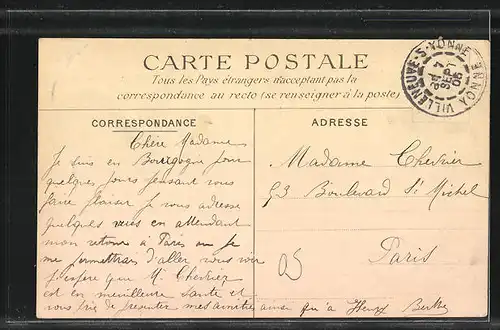 CARTE POSTALE
Tous les Pays étrangers n'acceptant pas la
correspondance au recto (se renseigner à la poste)
VILLENEUVE-S-YONNE YONNE
SEPT
06
CORRESPONDANCE
ADRESSE
Chère Madame
Je suis en Bourgogne pour
quelques jours pensant vous
faire plaisir je vous adresse
quelques vues en attendant
mon retour à Paris où je
me permettrai d'aller vous voir
J'espère que Mr Chevrier
est en meilleure santé et
vous prie de présenter mes amitiés ainsi qu'à Henry Berthe
Madame Chevrier
53 Boulevard St Michel
Paris
05